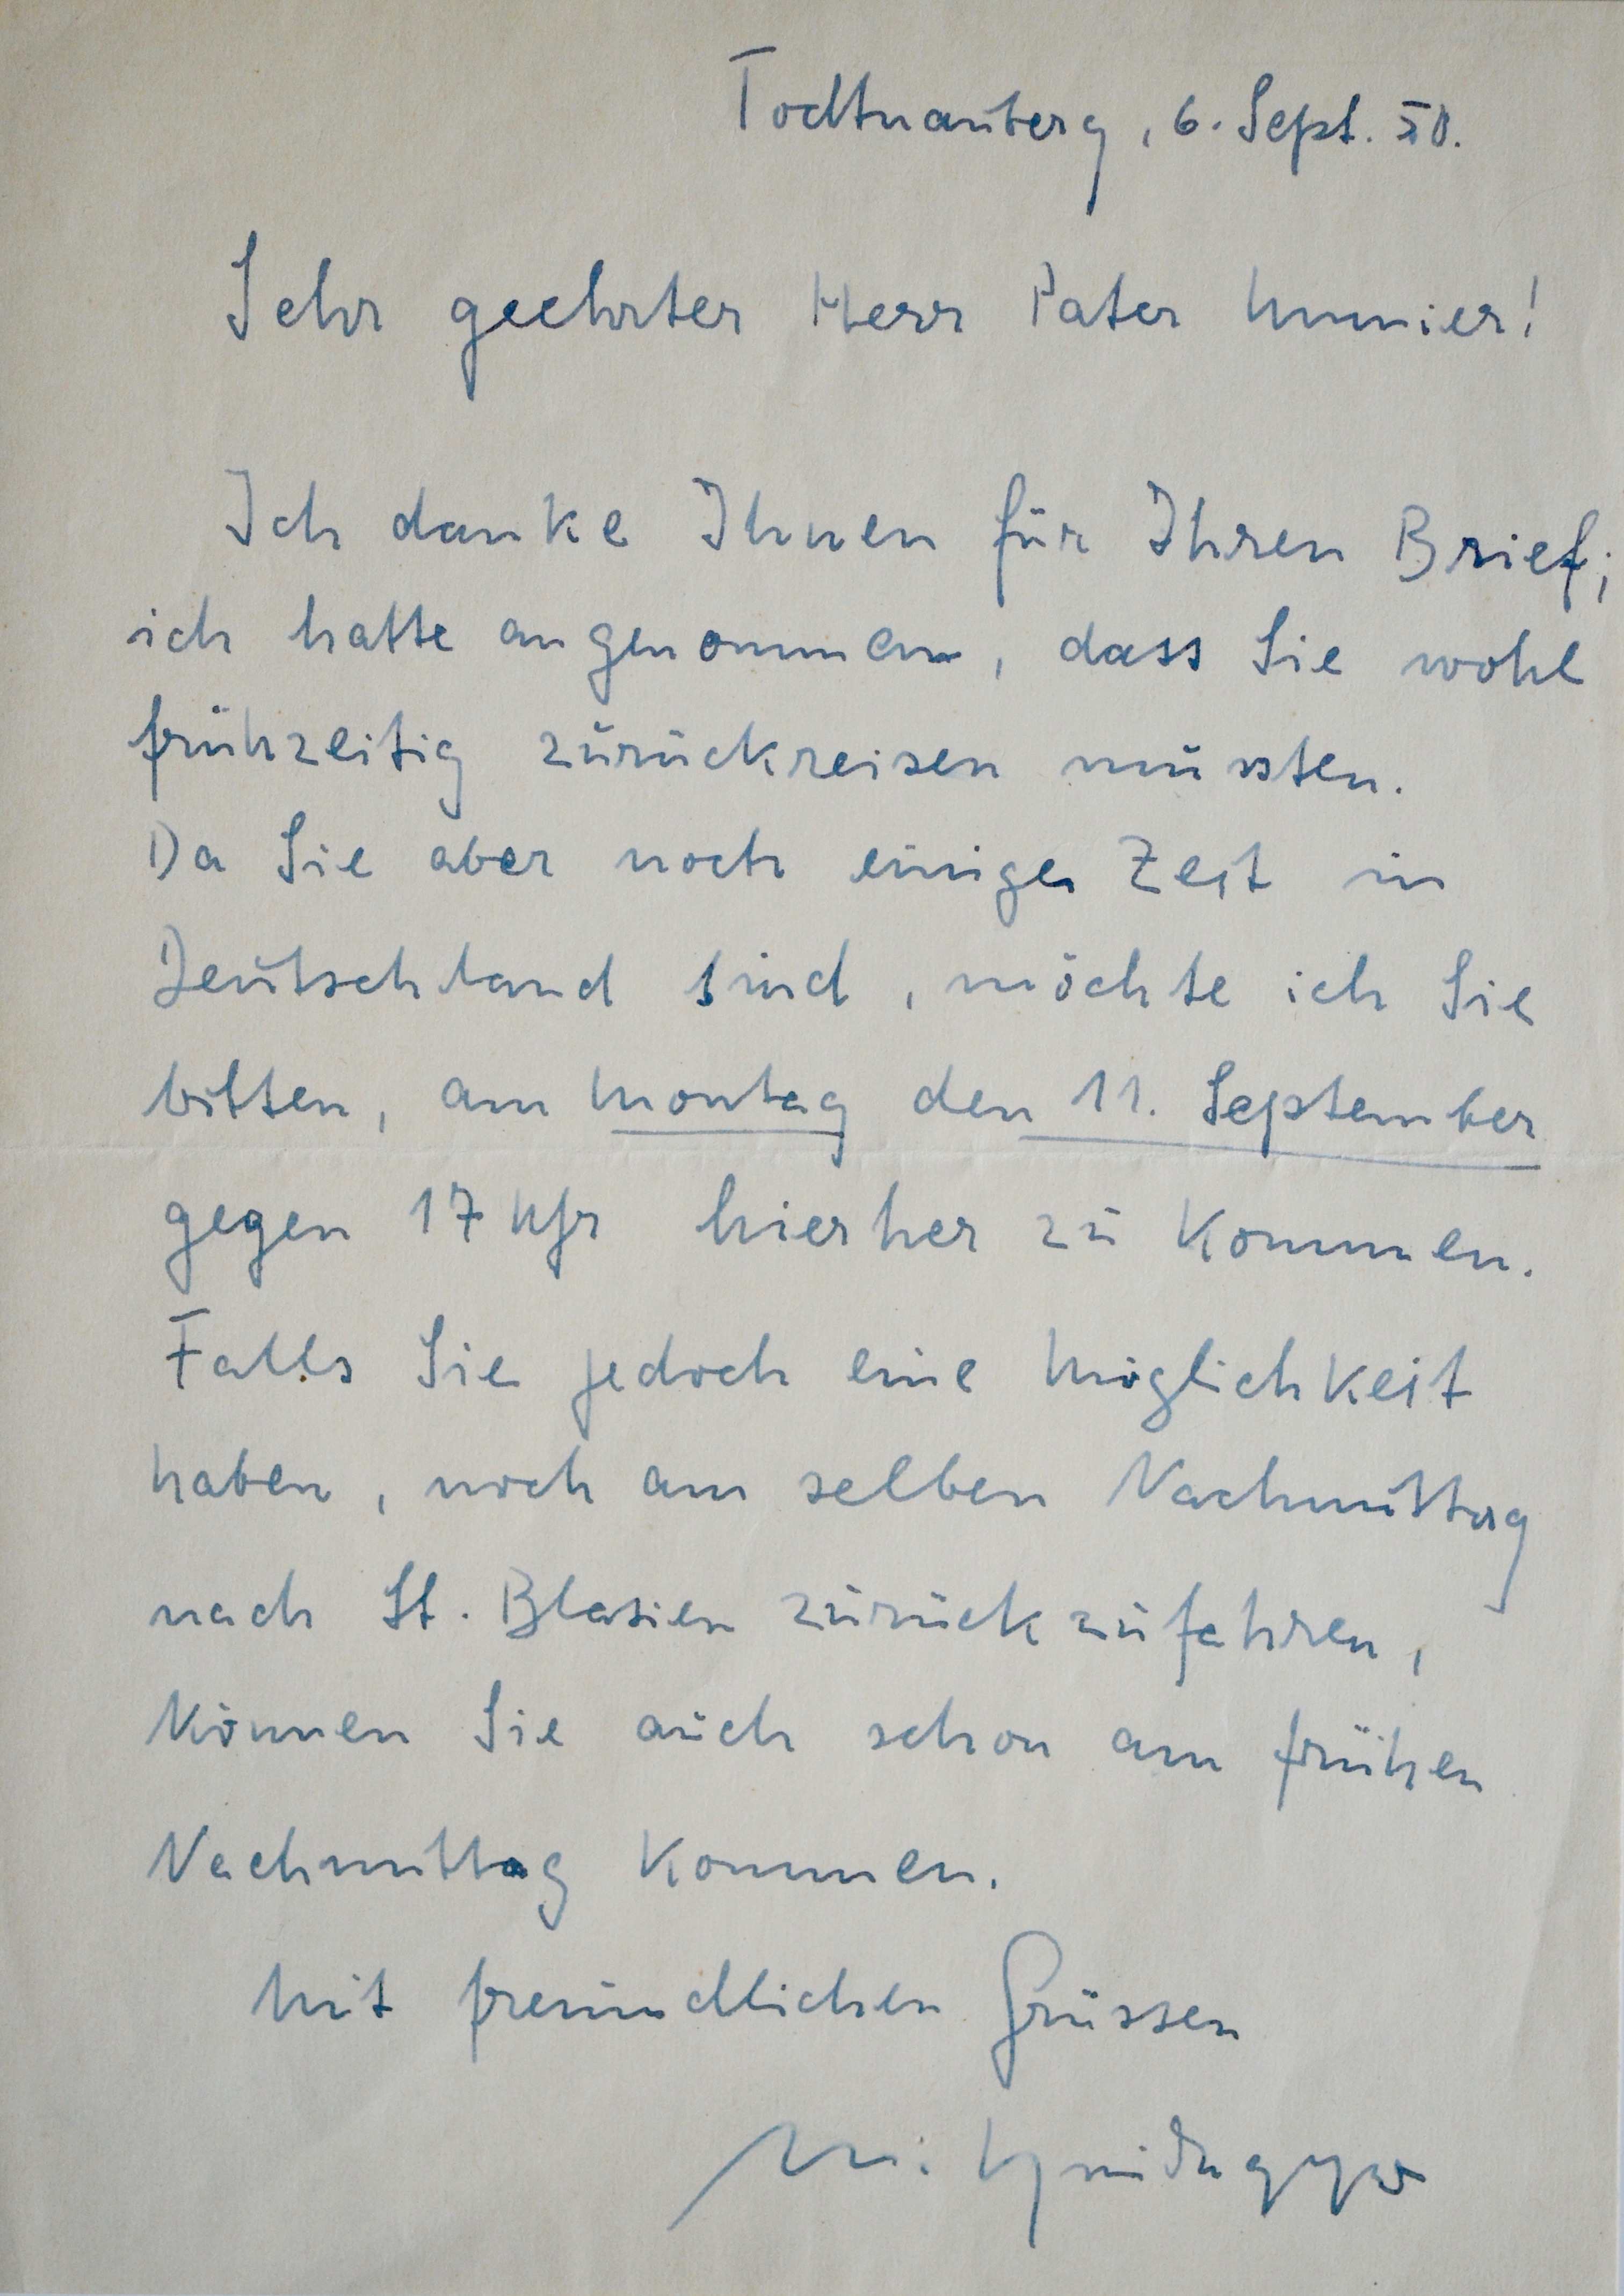 Todtnauberg, 6. Sept. 50.
Sehr geehrter Herr Pater Munier!
Ich danke Ihnen für Ihren Brief;
ich hatte angenommen, dass Sie wohl
frühzeitig zurückreisen müssten.
Da Sie aber noch einige Zeit in
Deutschland sind, möchte ich Sie
bitten, am Montag den 11. September
gegen 17 Uhr hierher zu kommen.
Falls Sie jedoch eine Möglichkeit
haben, noch am selben Nachmittag
nach St. Blasien zurückzufahren,
können Sie auch schon am frühen
Nachmittag kommen.
Mit freundlichen Grüssen
M. Heidegger